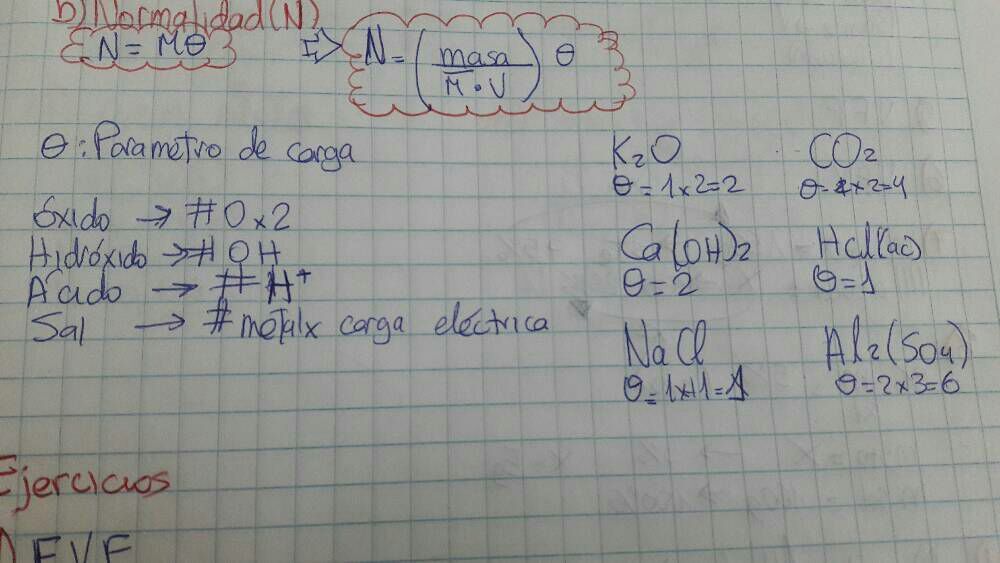 b) Normalidad (N)
N = Mθ ⇒ N = (masa / M̅ • V) θ
θ : Parametro de carga
Óxido → # O x 2
Hidróxido → # OH
Ácido → # H⁺
Sal → # metal x carga eléctrica
K₂O
θ = 1 x 2 = 2
CO₂
θ = 2 x 2 = 4
Ca(OH)₂
θ = 2
HCl(ac)
θ = 1
NaCl
θ = 1x+1 = 1
Al₂(SO₄)
θ = 2 x 3 = 6
Ejercicios
1) F V F